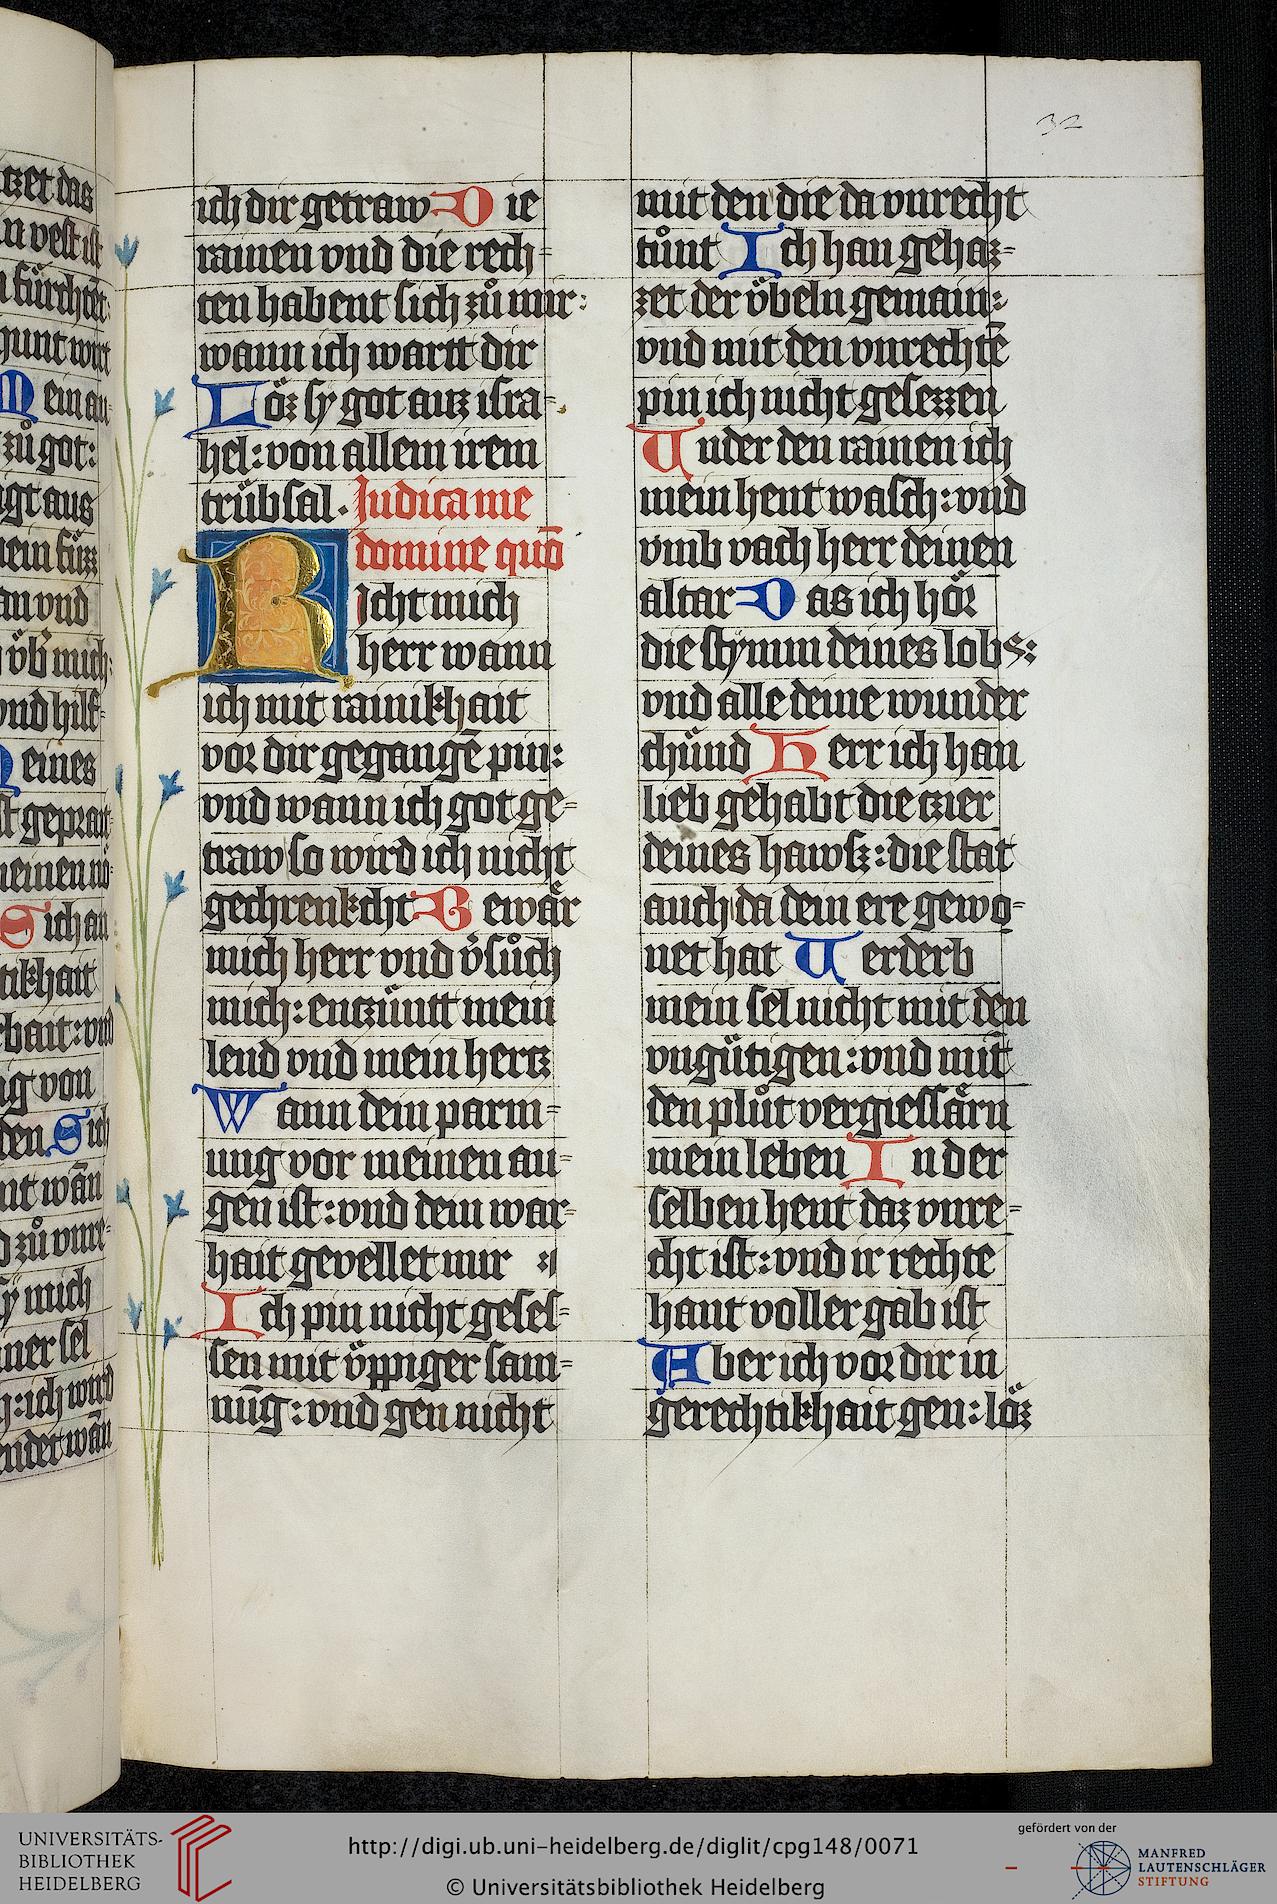 tzet das
n vest ist
n fürchtēt:
gunt wirt
Mein an
zů got:
gt aus
mein fuͤzz
an vnd
vͤb̄ mich:
vnd hilf-
meines
st geprait
meinen nö-
Sich an
tikhait
rbait: vnd
ig von
den. Sich
nt wān
d zů vnre-
sy mich
iner sel
g: ich wird
endet wān
32
ich dir getraw Die
rainen vnd die rech-
ten habent sich zů mir:
wann ich wartt dir
Löz sy got auz isra-
hel: von allem irem
trübsal. Judica me
domine quō
Richt mich
herr wann
ich mit rainikhait
vor dir gegangē pin:
vnd wann ich got ge-
traw so wird ich nicht
gechrenkcht Bewär
mich herr vnd v̓sůch
mich: entzüntt mein
lend vnd mein hertz
Wann dein parm-
ung vor meinen au-
gen ist: vnd dein war-
hait gevellet mir :
Ich pin nicht geses-
sen mit vppiger sam-
nūg: vnd gen nicht
mit den die da vnrecht
tůnt Ich han gehaz-
zet der vbeln gemain:
vnd mit den vnrechtē
pin ich nicht gesezzen
Vnder den rainen ich
mein hent wasch: vnd
vmb vach herr deinen
altar Das ich hör
die stymm deines lobs:
vnd alle deine wunder
chünd Herr ich han
lieb gehabt die tzier
deines hawsz: die stat
auch da dein ere gewo-
net hat Verderb
mein sel nicht mit den
vngütigen: vnd mit
den plůt vergiessärn
mein leben In der
selben hent daz vnre-
cht ist: vnd ir rechte
hant voller gab ist
Aber ich vor dir in
gerechtikhait gen: löz
UNIVERSITÄTS-
BIBLIOTHEK
HEIDELBERG
http://digi.ub.uni-heidelberg.de/diglit/cpg148/0071
© Universitätsbibliothek Heidelberg
gefördert von der
MANFRED
LAUTENSCHLÄGER
STIFTUNG